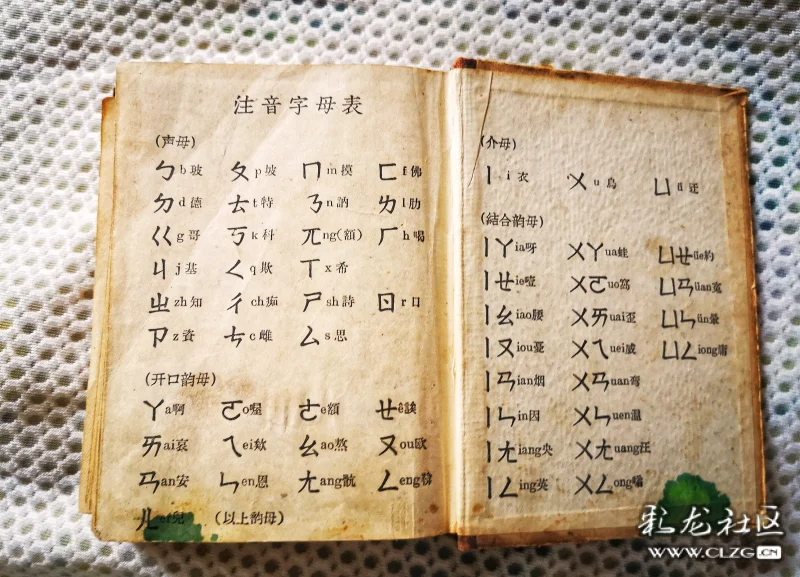 注音字母表
(声母)
ㄅb玻 ㄆp坡 ㄇm摸 ㄈf佛
ㄉd德 ㄊt特 ㄋn訥 ㄌl肋
ㄍg哥 ㄎk科 ㄫng(額) ㄏh喝
ㄐj基 ㄑq欺 ㄒx希
ㄓzh知 ㄔch痴 ㄕsh詩 ㄖr日
ㄗz資 ㄘc雌 ㄙs思
(开口韵母)
ㄚa啊 ㄛo喔 ㄜe額 ㄝê誒
ㄞai哀 ㄟei欸 ㄠao熬 ㄡou欧
ㄢan安 ㄣen恩 ㄤang骯 ㄥeng
ㄦer兒 (以上韵母)
(介母)
ㄧi衣 ㄨu烏 ㄩü迂
(結合韵母)
ㄧㄚia呀 ㄨㄚua蛙 ㄩㄝüe約
ㄧㄝie噎 ㄨㄛuo窩 ㄩㄢüan冤
ㄧㄠiao腰 ㄨㄞuai歪 ㄩㄣün暈
ㄧㄡiou憂 ㄨㄟuei威 ㄩㄥiong庸
ㄧㄢian烟 ㄨㄢuan弯
ㄧㄣin因 ㄨㄣuen溫
ㄧㄤiang央 ㄨㄤuang汪
ㄧㄥing英 ㄨㄥong嗡
彩龙社区
WWW.CLZG.CN